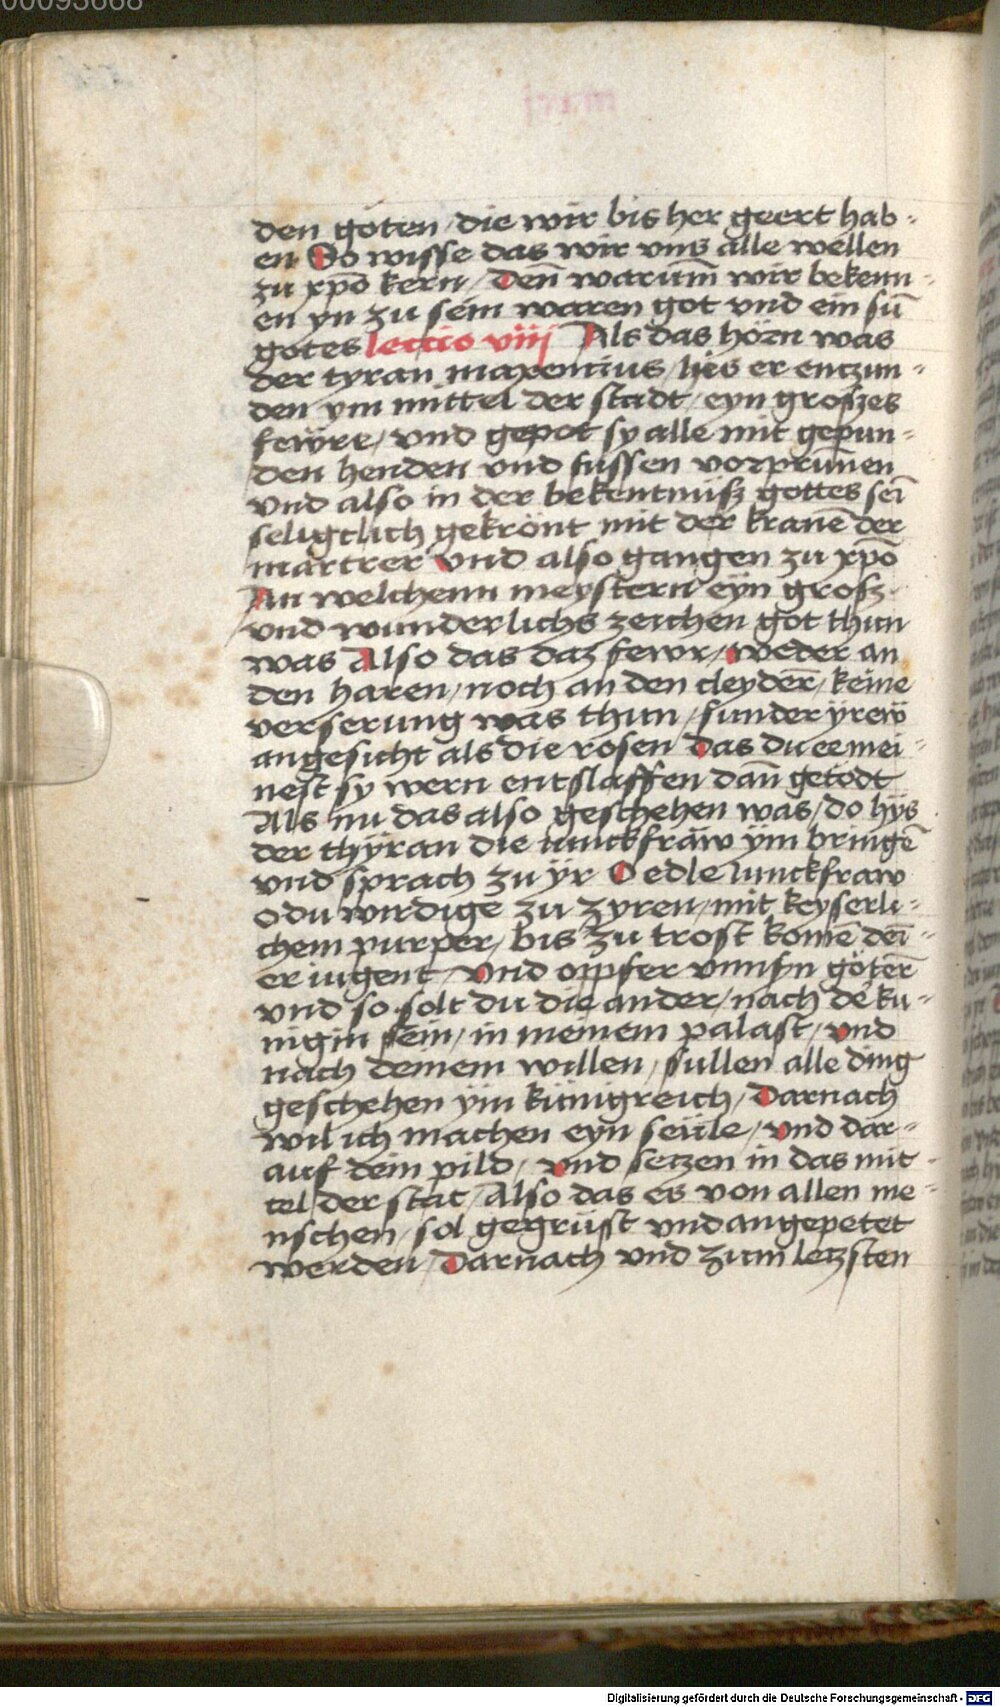 00093668
den göten / die wir bis her geert hab-
en So wisse das wir vns alle wellen
zu xpō kern / Den warum̄ wir bekenn-
en yn zu sein waren got vnd ein sū
gotes leccio viij Als das hörn was
der tyran maxencius / hies er enczun-
den ym mittel der stadt / eyn groszes
fewre / vnd gepot sy alle mit gepun-
den henden vnd fussen vorprūnen
vnd also in der bekentnüsz gottes sei
seligclich gekrönt mit der kranē der
martrer vnd also gangen zu xpō
An welchenn meystern eyn grosz
vnd wunderlichs zeichen got thun
was Also das daz fewr / weder an
den haren / noch an den cleyderr̄ / keine
verserung was thun / sunder yrew
angesicht als die rosen Das du ee mei-
nest sy wern entslaffen dan̄ getodt
Als nu das also geschehen was / do hys
der thyran die iunckfraw ym bringē
vnd sprach zu yr O edle iunckfraw
o du wirdige zu zyren / mit keyserli-
chem purper / bis zu trost komē dei-
er iugent / vnd oppfer vnnsn göterr̄
vnd so solt du die ander / nach dē ku-
nigin sein / in meinem palast / vnd
nach deinem willen / sullen alle ding
geschehen ym künigreich / Darnach
wil ich machen eyn seüle / vnd dar-
auf dein pild / vnd setzen in das mit-
tel der stat / Also das es von allen me-
nschen / sol gegrüst vnd angepetet
werden / Darnach vnd zum letzsten
Digitalisierung gefördert durch die Deutsche Forschungsgemeinschaft - DFG